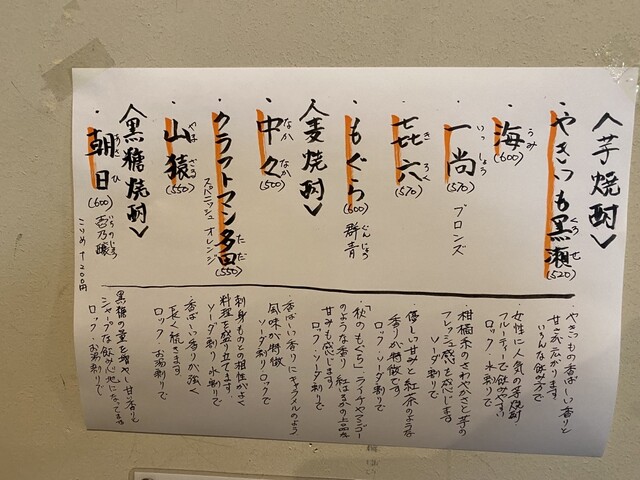 〈芋焼酎〉
・やきいも黒瀬(520)
くろせ
・海(600)
うみ
・一尚(570)
いっしょう
ブロンズ
・㐂六(570)
きろく
・もぐら(600)
群青
ぐんじょう
〈麦焼酎〉
・中々(500)
なかなか
・クラフトマン多田(550)
ただ
スパニッシュオレンジ
・山猿(550)
やまざる
〈黒糖焼酎〉
・朝日(600)
あさひ
壱乃醸
いちのじょう
・やきいもの香ばしい香りと
甘さが広がります
いろんな飲み方で
・女性に人気の芋焼酎
フルーティーで飲みやすい
ロック・水割りで
・柑橘系のさわやかさと芋の
フレッシュ感を感じます
ソーダ割りで
・優しい甘みと紅茶のような
香りが特徴です
ロック・ソーダ割りで
・「秋のもぐら」ライチやマンゴー
のような香り 紅はるかの上品な
甘みも感じます
ロック・ソーダ割りで
・香ばしい香りにキャラメルのよう
風味が特徴
ソーダ割りロックで
・刺身ものとの相性がよく
料理を盛り立てます
ソーダ割り 水割りで
・香ばしい香りが強く
長く続きます
ロック・お湯割りで
・黒糖の量を増やし甘い香りも
シャープな飲み心地になってます
ロック・お湯割りで